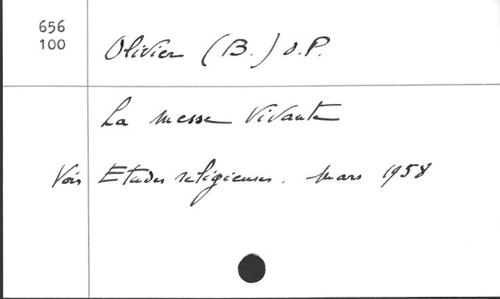 656
100
Olivier (B.) O.P.
La messe vivante
Voir Etudes religieuses. Mars 1958